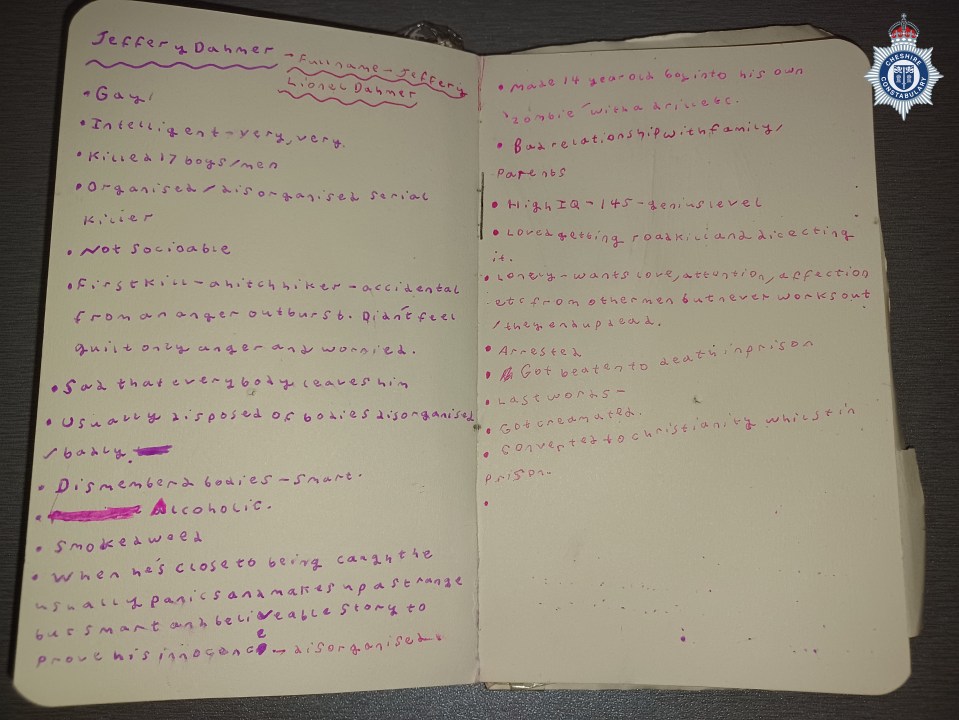 Jeffery Dahmer
- Full name - Jeffery
Lionel Dahmer
• Gay
• Intelligent - very, very
• Killed 17 boys/men
• Organised/disorganised serial
killer
• Not socioable
• First kill - a hitchhiker - accidental
from an anger outburst. Didn't feel
guilt only anger and worried.
• Sad that everybody leaves him
• Usually disposed of bodies disorganised
/badly.
• Dismemberd bodies - smart.
• Alcoholic.
• Smoked weed
• When he's close to being caught he
usually panics and makes up a strange
but smart and believeable story to
prove his innocence → disorganised
• Made 14 year old boy into his own
'zombie' with a drill etc.
• Bad relationship with family/
parents
• High IQ - 145 - genius level
• Loved getting roadkill and disecting
it.
• Lonely - wants love, attention, affection
ets from other men but never works out
/they end up dead.
• Arrested
• Got beaten to death in prison
• Last words -
• Got creamated.
• Converted to christianity whilst in
prison.
•
CHESHIRE
CONSTABULARY